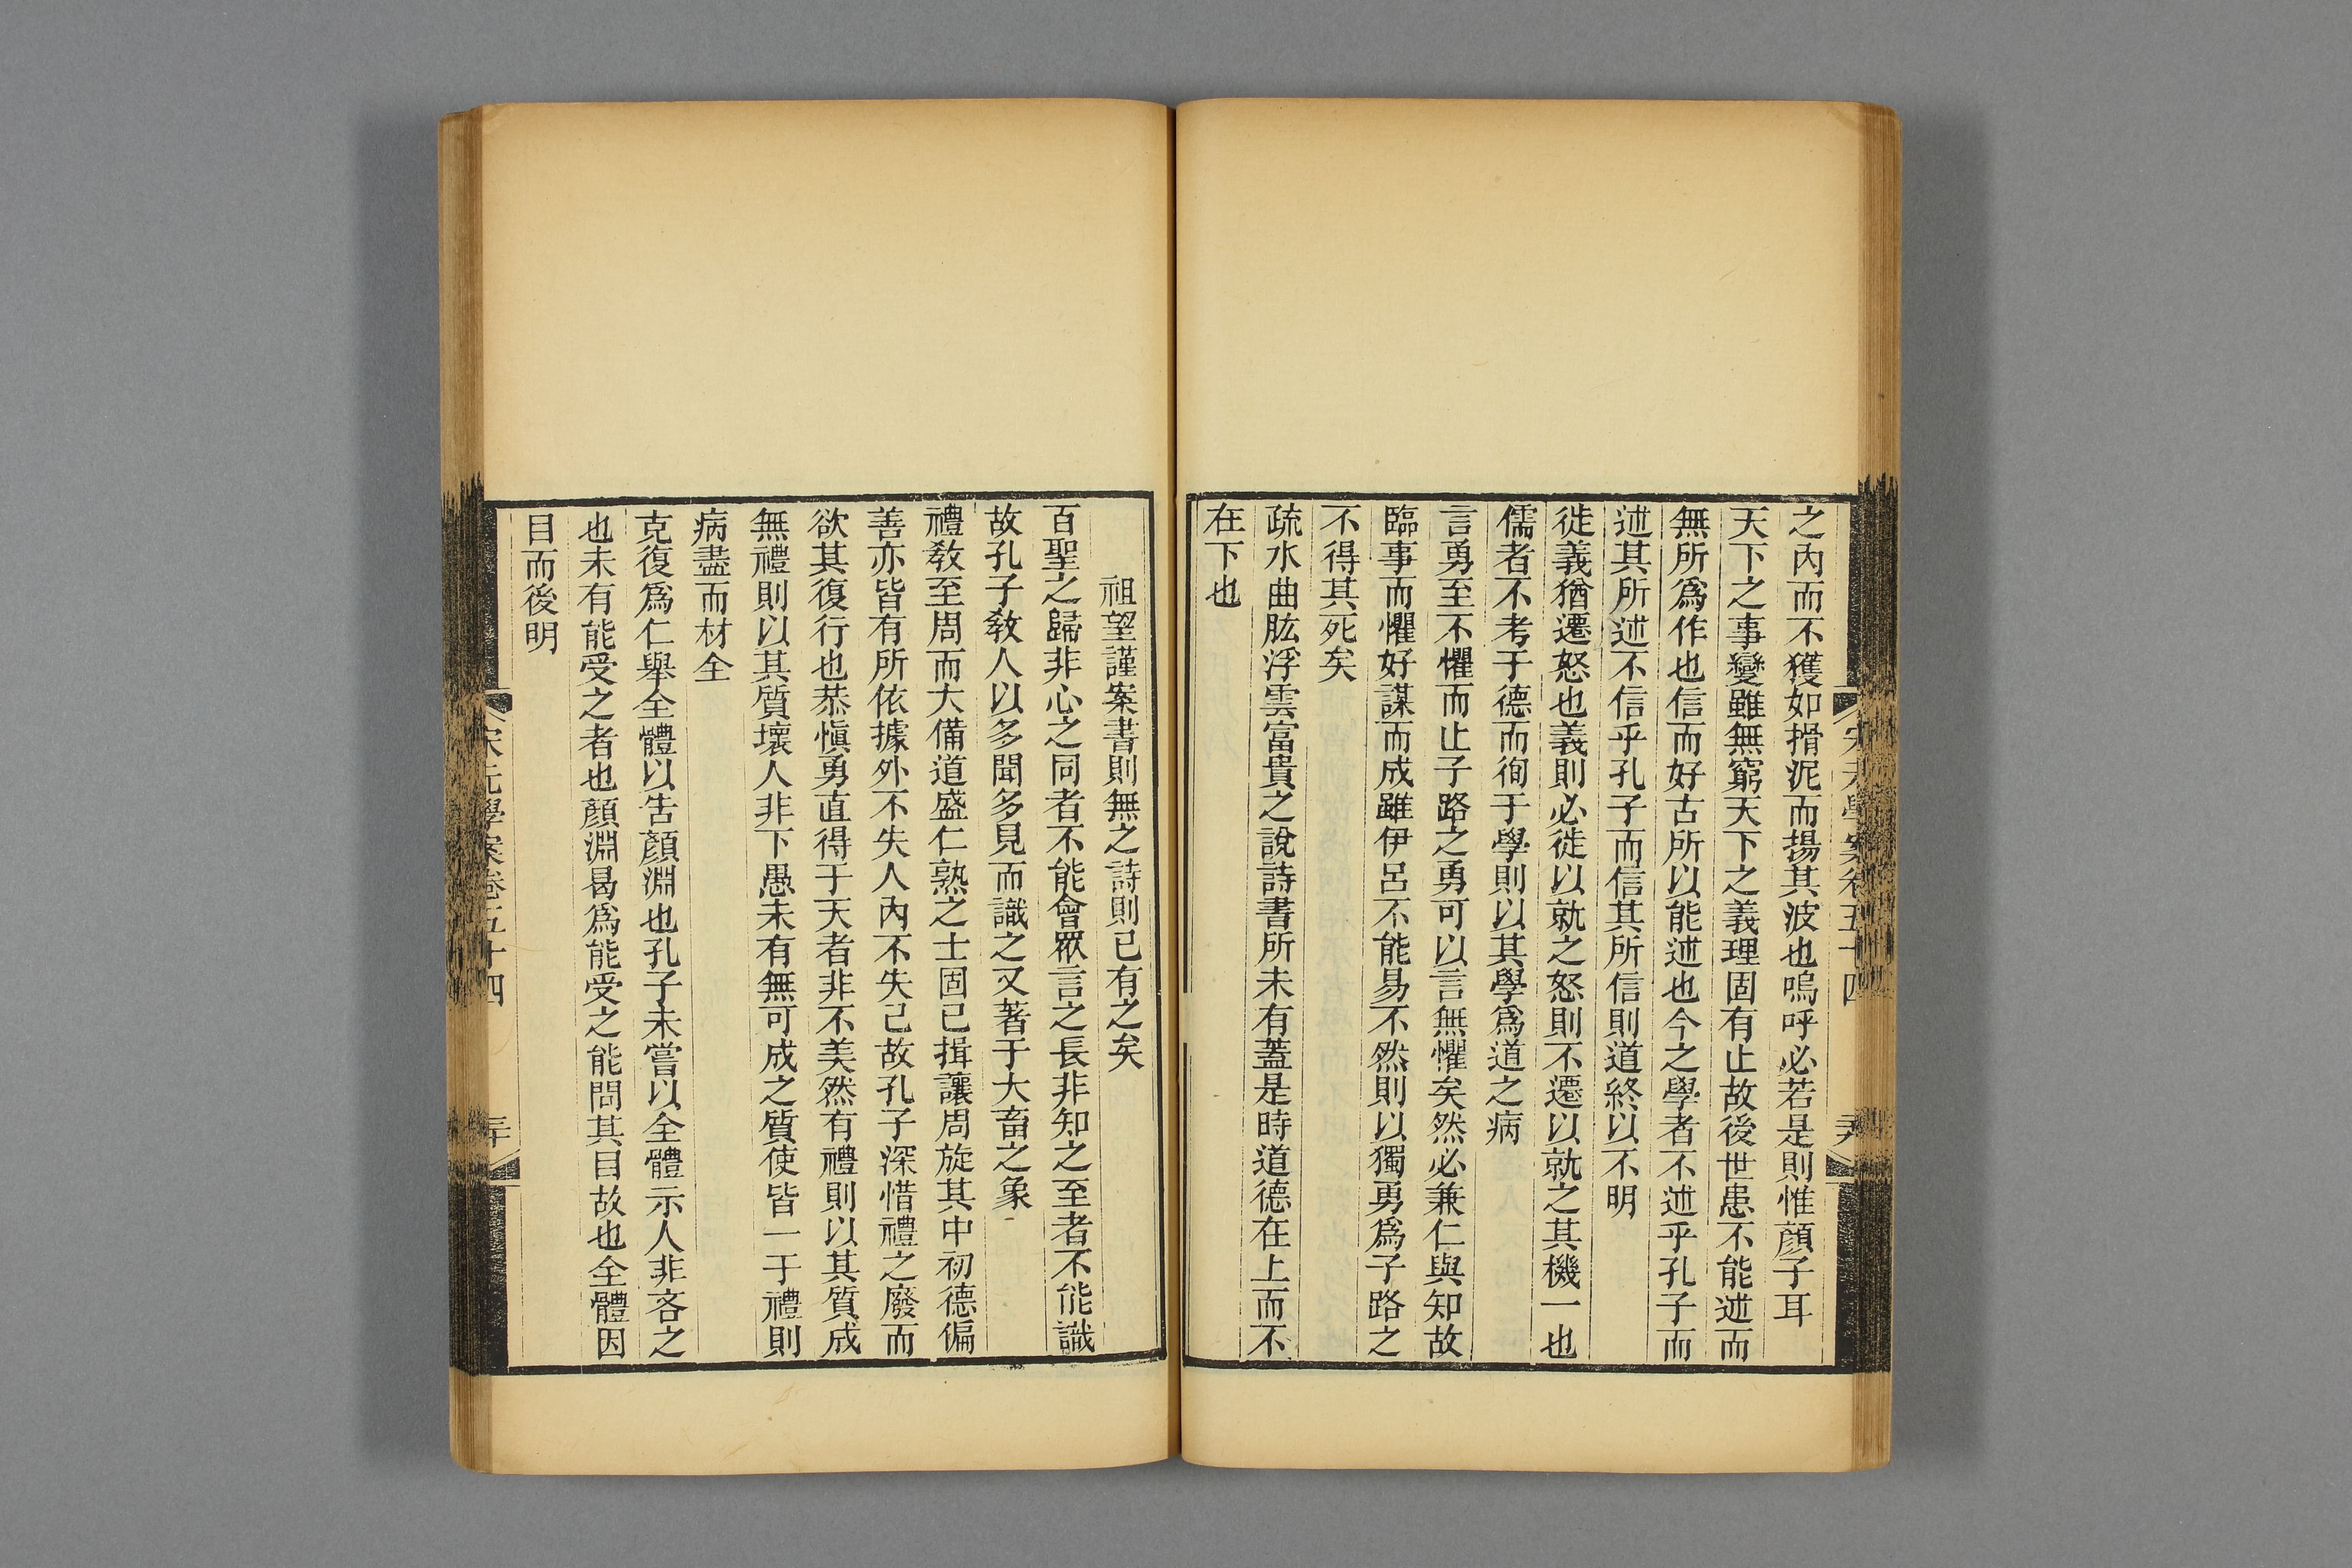 之內而不獲如搰泥而揚其波也嗚呼必若是則惟顏子耳
天下之事變雖無窮天下之義理固有止故後世患不能述而
無所爲作也信而好古所以能述也今之學者不述乎孔子而
述其所述不信乎孔子而信其所信則道終以不明
徙義猶遷怒也義則必徙以就之怒則不遷以就之其機一也
儒者不考于德而徇于學則以其學爲道之病
言勇至不懼而止子路之勇可以言無懼矣然必兼仁與知故
臨事而懼好謀而成雖伊呂不能易不然則以獨勇爲子路之
不得其死矣
疏水曲肱浮雲富貴之說詩書所未有蓋是時道德在上而不
在下也
祖望謹案書則無之詩則已有之矣
百聖之歸非心之同者不能會眾言之長非知之至者不能識
故孔子教人以多聞多見而識之又著于大畜之象
禮教至周而大備道盛仁熟之士固已揖讓周旋其中初德偏
善亦皆有所依據外不失人內不失己故孔子深惜禮之廢而
欲其復行也恭慎勇直得于天者非不美然有禮則以其質成
無禮則以其質壞人非下愚未有無可成之質使皆一于禮則
病盡而材全
克復爲仁舉全體以告顏淵也孔子未嘗以全體示人非吝之
也未有能受之者也顏淵曷爲能受之能問其目故也全體因
目而後明
宋元學案卷五十四